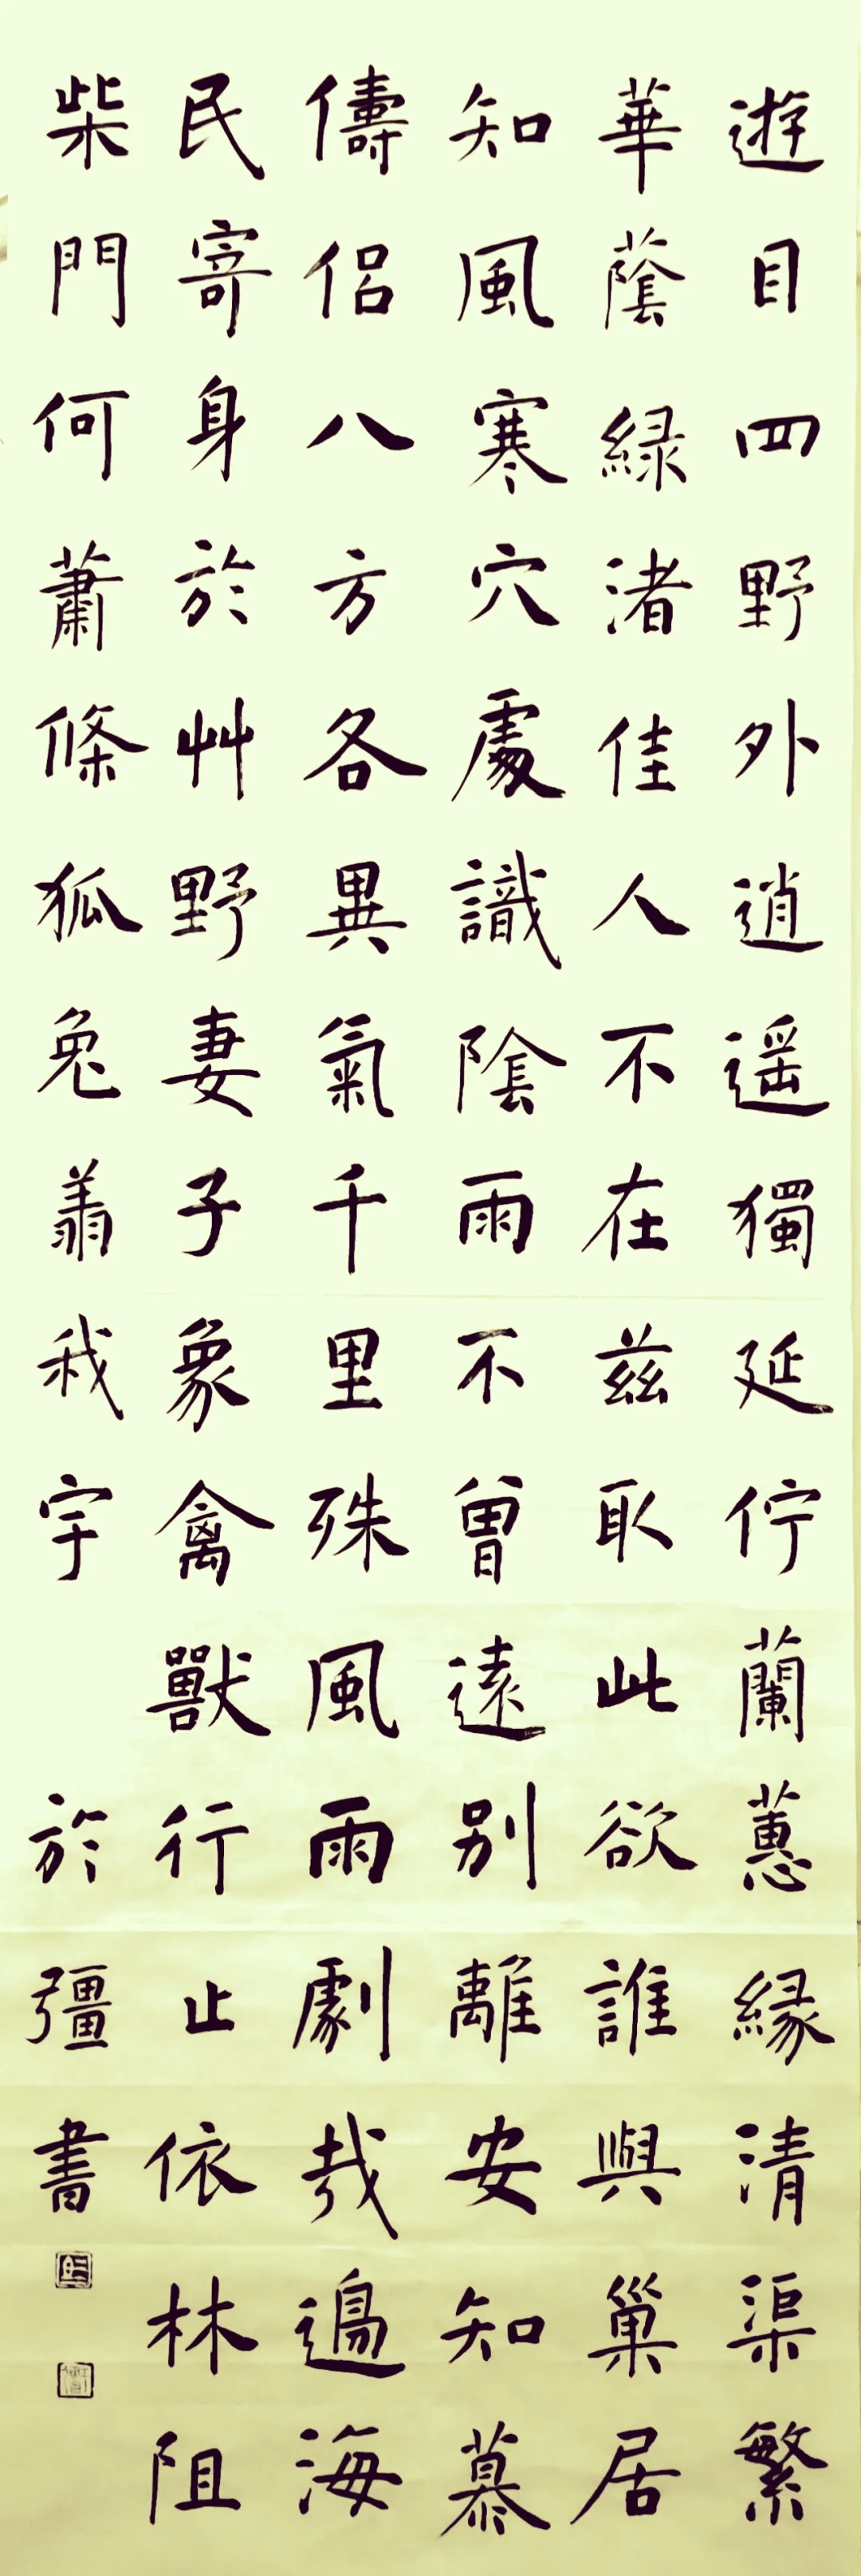 遊目四野外逍遥獨延佇蘭蕙緣清渠繁
華蔭緑渚佳人不在兹取此欲誰與巢居
知風寒穴處識陰雨不曾遠别離安知慕
儔侣八方各異氣千里殊風雨劇哉邊海
民寄身於艸野妻子象禽獸行止依林阻
柴門何蕭條狐兔翔我宇
於彊書